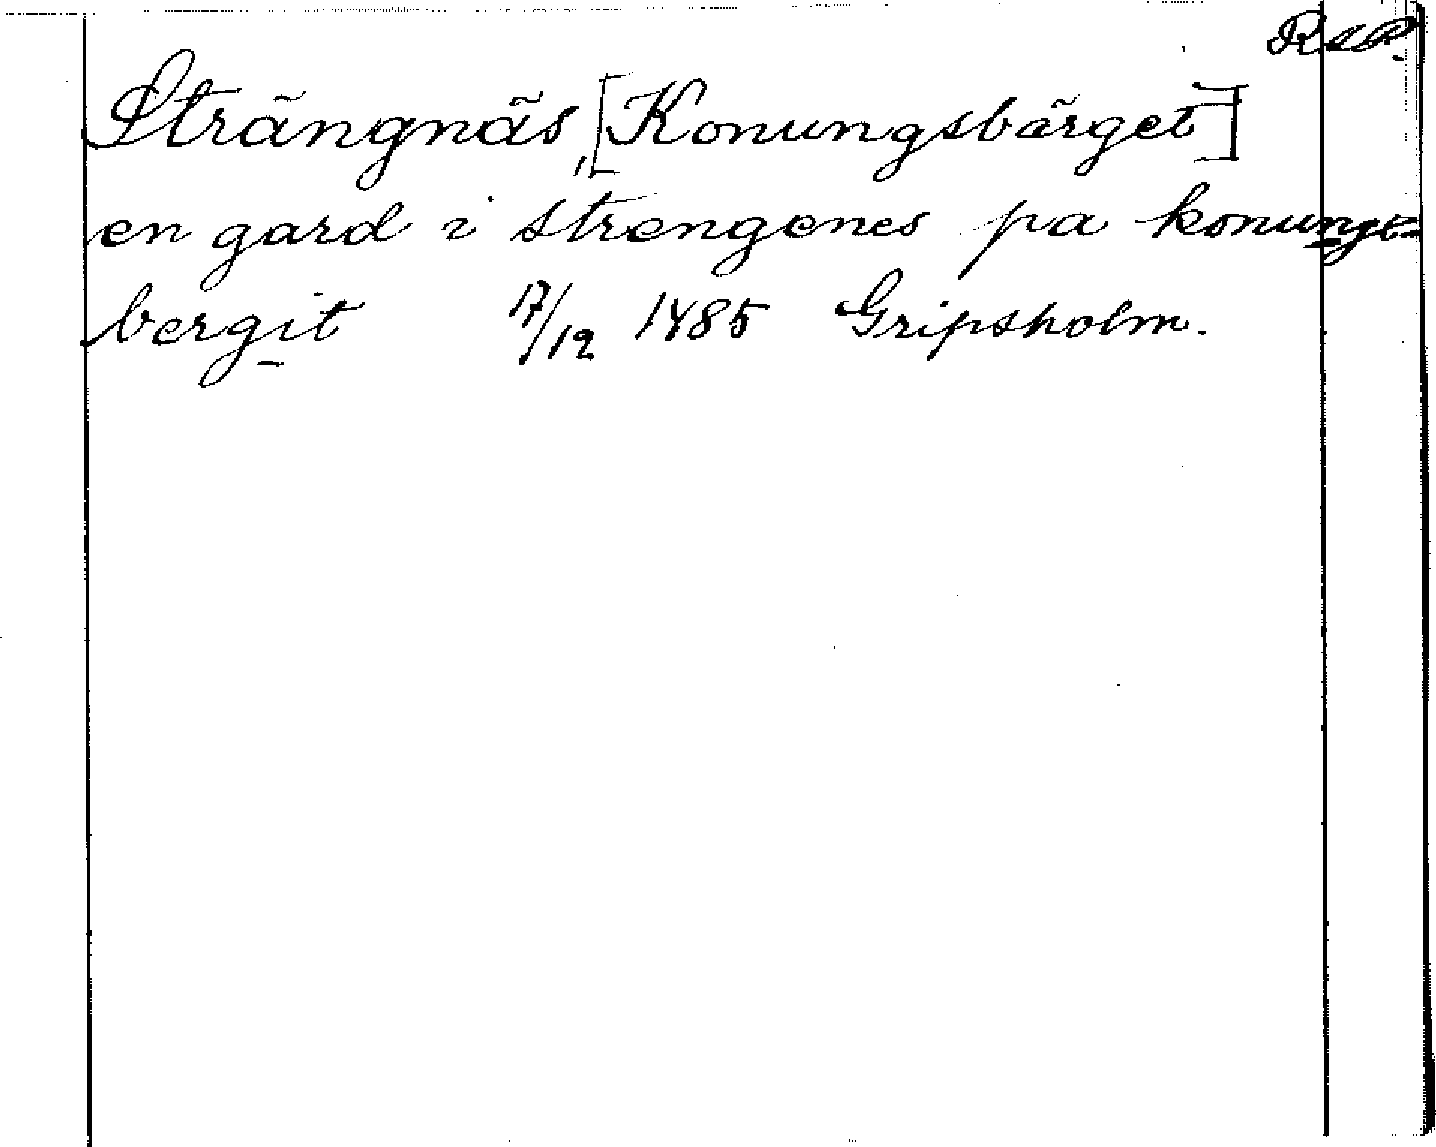 RAP.
Strängnäs, [Konungsbärget]
en gard i strengenes pa konungx=
bergit 17/12 1485 Gripsholm.